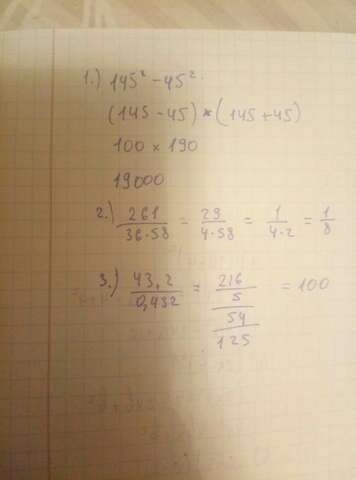 1.) 145² - 45².
(145 - 45) × (145 + 45)
100 × 190
19000
2.) 261/36·58 = 29/4·58 = 1/4·2 = 1/8
3.) 43,2/0,432 = 216/5/54/125 = 100